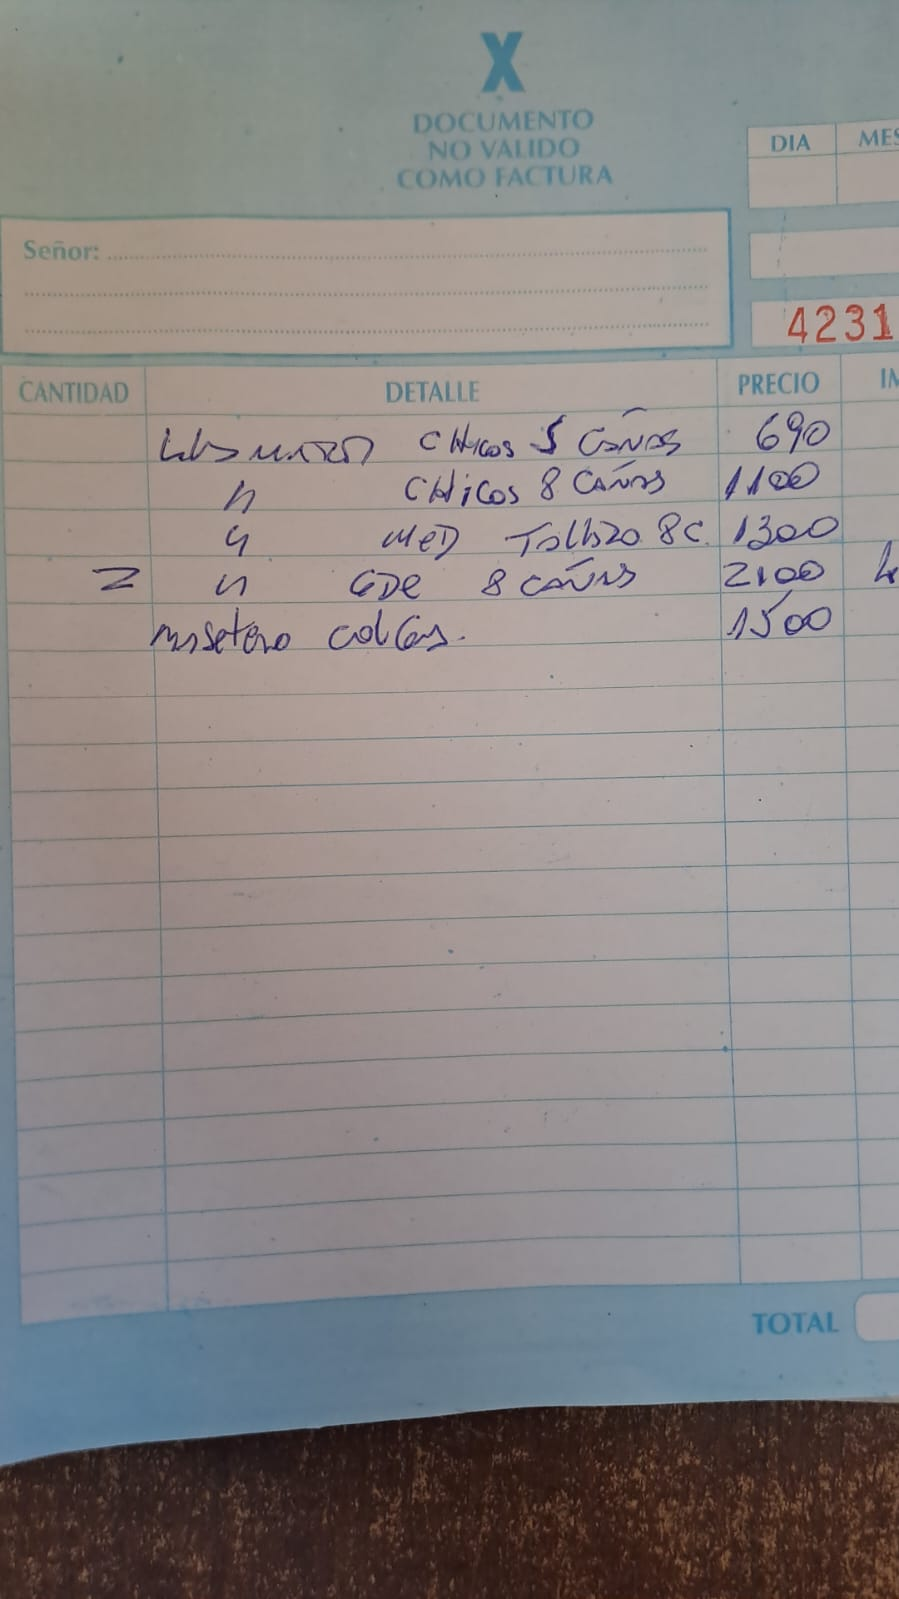 X
DOCUMENTO
NO VALIDO
COMO FACTURA
DIA MES
Señor:
4231
CANTIDAD DETALLE PRECIO IM
CHICOS 5 CAÑAS 690
" CHICOS 8 CAÑAS 1100
" MED 8C. 1300
2 " GDE 8 CAÑAS 2100
1500
TOTAL